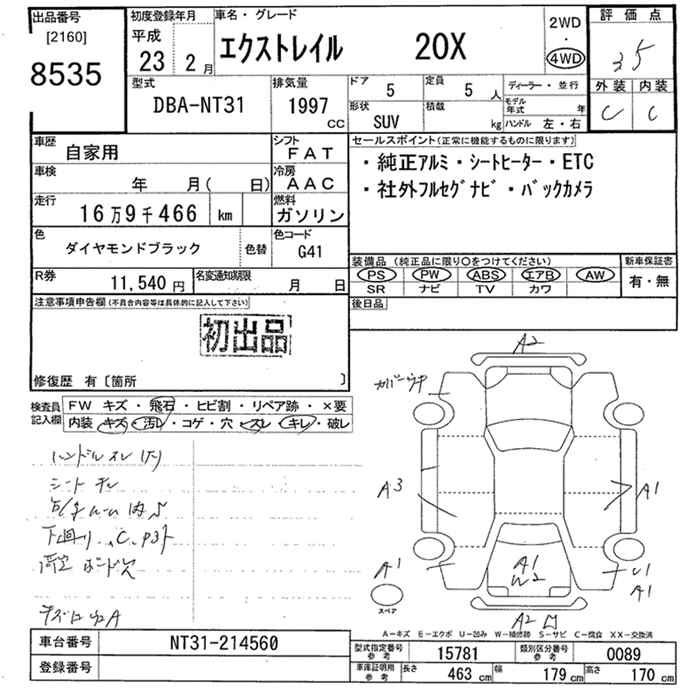 出品番号 初度登録年月 車名・グレード 2WD・4WD 評価点
[2160] 平成 3.5
8535 23年 2月 エクストレイル 20X
型式 排気量 ドア 5 定員 5人 ディーラー・並行 外装 内装
DBA-NT31 1997cc 形状 SUV 積載 kg モデル年式 年 ハンドル 左・右 C C
車歴 自家用 シフト FAT セールスポイント(正常に機能するものに限ります)
車検 年 月( 日) 冷房 AAC ・純正アルミ・シートヒーター・ETC
走行 16万9千466 km 燃料 ガソリン ・社外フルセグナビ・バックカメラ
色 ダイヤモンドブラック 色替 色コード G41
装備品(純正品に限り○をつけてください) 新車保証書
R券 11,540円 名変通知期限 月 日 PS PW ABS エアB AW 有・無
SR ナビ TV カワ
注意事項申告欄(不具合内容等は具体的に記入して下さい) 後日品
初出品
修復歴 有〔箇所 〕
検査員記入欄 FW キズ・飛石・ヒビ割・リペア跡・×要
内装 キズ・汚レ・コゲ・穴・スレ・キレ・破レ
A2
ハンドルスレ
シート
A3 A1
A1 A1 W2 U1 A1
スペア
A2
A-キズ E-エクボ U-凹み W-補修跡 S-サビ C-腐食 XX-交換済
車台番号 NT31-214560 型式指定番号 参考 15781 類別区分番号 参考 0089
登録番号 車庫証明用 参考 長さ 463cm 幅 179cm 高さ 170cm